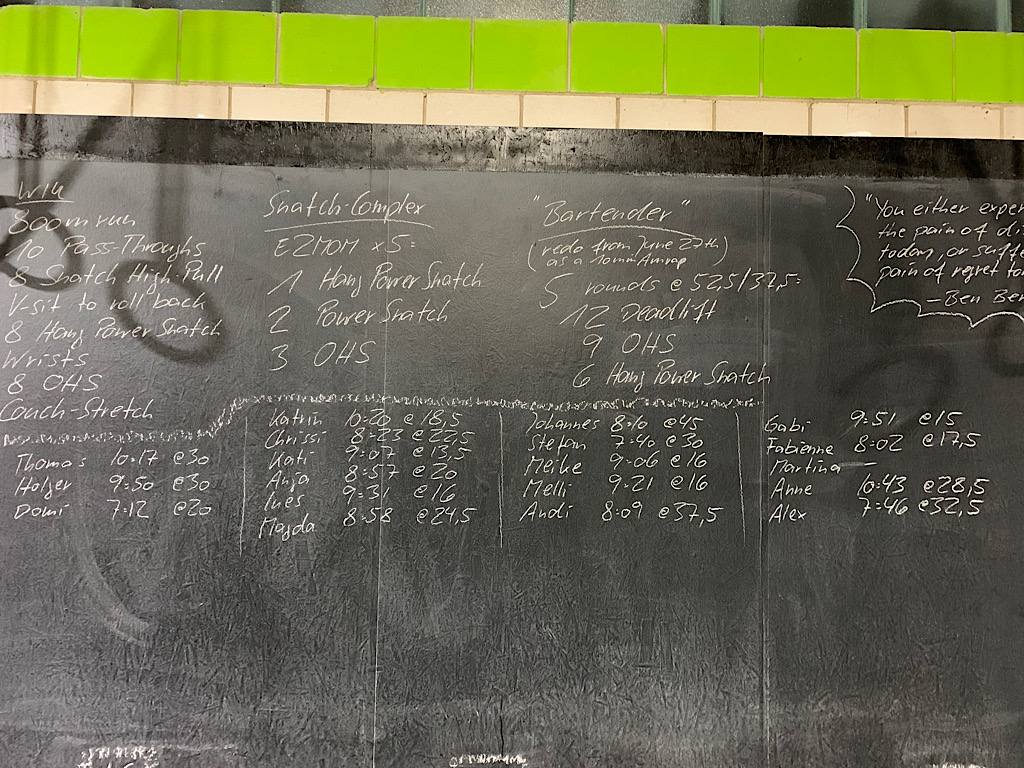 WU
800m run
10 Pass-Throughs
8 Snatch High-Pull
V-sit to roll back
8 Hang Power Snatch
Wrists
8 OHS
Couch-Stretch
Snatch-Complex
E2MOM x5:
1 Hang Power Snatch
2 Power Snatch
3 OHS
"Bartender"
(redo from June 27th
as a 10min Amrap)
5 rounds @ 52,5/37,5:
12 Deadlift
9 OHS
6 Hang Power Snatch
"You either exper
the pain of di
today, or suffe
pain of regret to
- Ben Ber
Thomas 10:17 @30
Holger 9:50 @30
Domi 7:12 @20
Katrin 10:20 @18,5
Chrissi 8:23 @22,5
Kati 9:07 @13,5
Anja 8:57 @20
Ines 9:31 @16
Magda 8:58 @24,5
Johannes 8:10 @45
Stefan 7:40 @30
Meike 9:06 @16
Melli 9:21 @16
Andi 8:09 @37,5
Gabi 9:51 @15
Fabienne 8:02 @17,5
Martina —
Anne 10:43 @28,5
Alex 7:46 @32,5